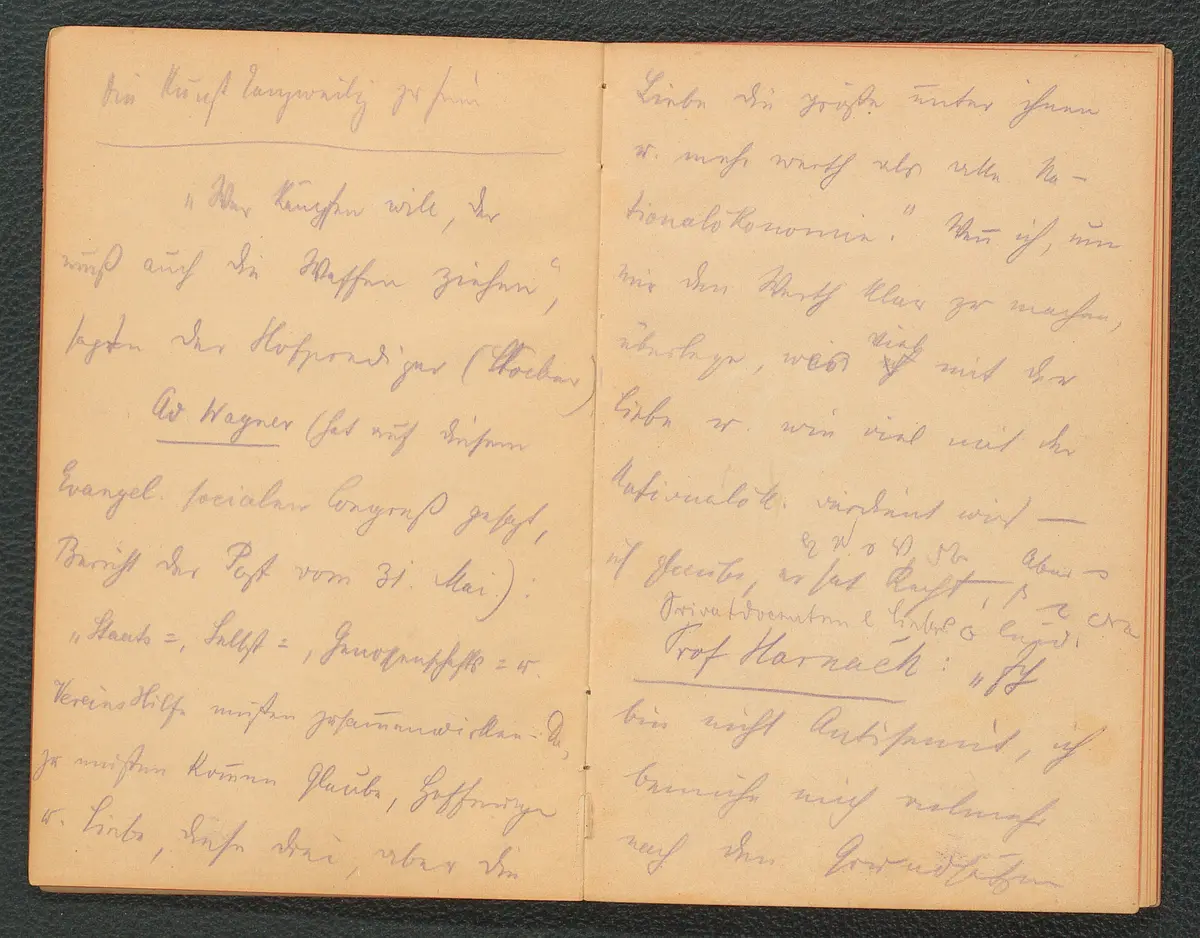 die Kunst langweilig zu sein
„Wer kämpfen will, der
muß auch die Waffen ziehen“,
sagten der Hofprediger (Stoecker)
Ad Wagner (hat auf diesem
Evangel. socialen Congreß gesagt,
Bericht der Post vom 31. Mai.):
„Staats=, Selbst=, Genossenschafts= u.
Vereinshilfe müßten zusam̅enwirken. Da-
zu müßten kom̅en Glaube, Hoffnung
u. Liebe, diese drei, aber die
Liebe die größte unter ihnen
u. mehr werth als alle Na-
tionalökonomie.“ Wen̅ ich, um
mir den Werth klar zu machen,
überlege, wie viel mit der
Liebe u. wie viel mit der
Nationalök. verdient wird —
ich glaube, er hat Recht,
aber
Privatdocenten Liebe
Prof Harnack: „Ich
bin nicht Antisemit, ich
bemühe mich vielmehr
nach den Grundsätzen